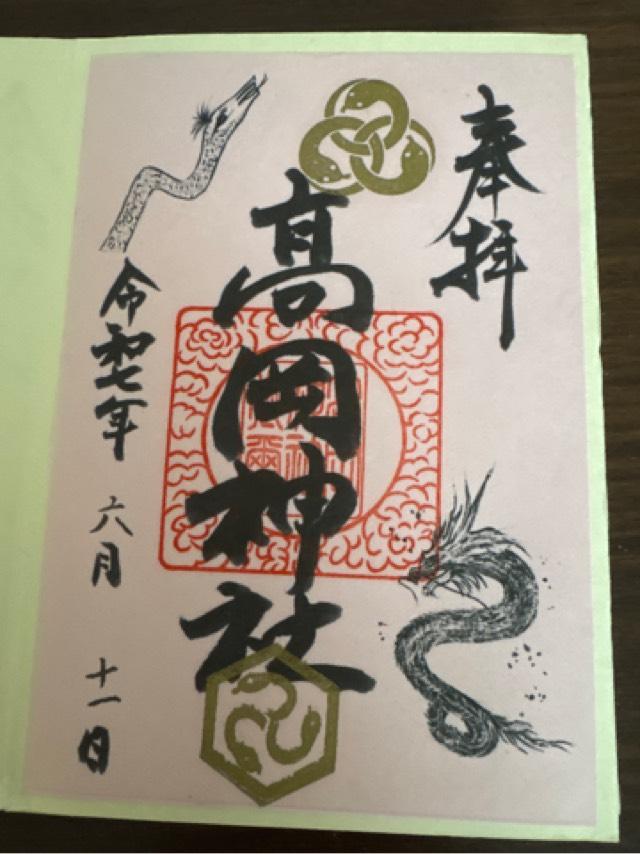 奉拝
高岡神社
令和七年 六月 十一日